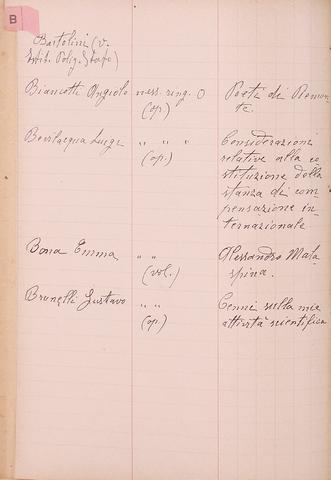 B
Bartolini (v.
Istit. Polig. Stato)
Biancotti Angiolo ness. ring. O Poeti di Piemon
(op.) te.
Bevilacqua Luigi " " " Considerazioni
(op.) relative alla co
stituzione della
stanza di com
pensazione in
ternazionale
Bona Emma " " Alessandro Mala
(vol.) spina.
Brunelli Gustavo " " Cenni sulla mia
(op.) attività scientifica